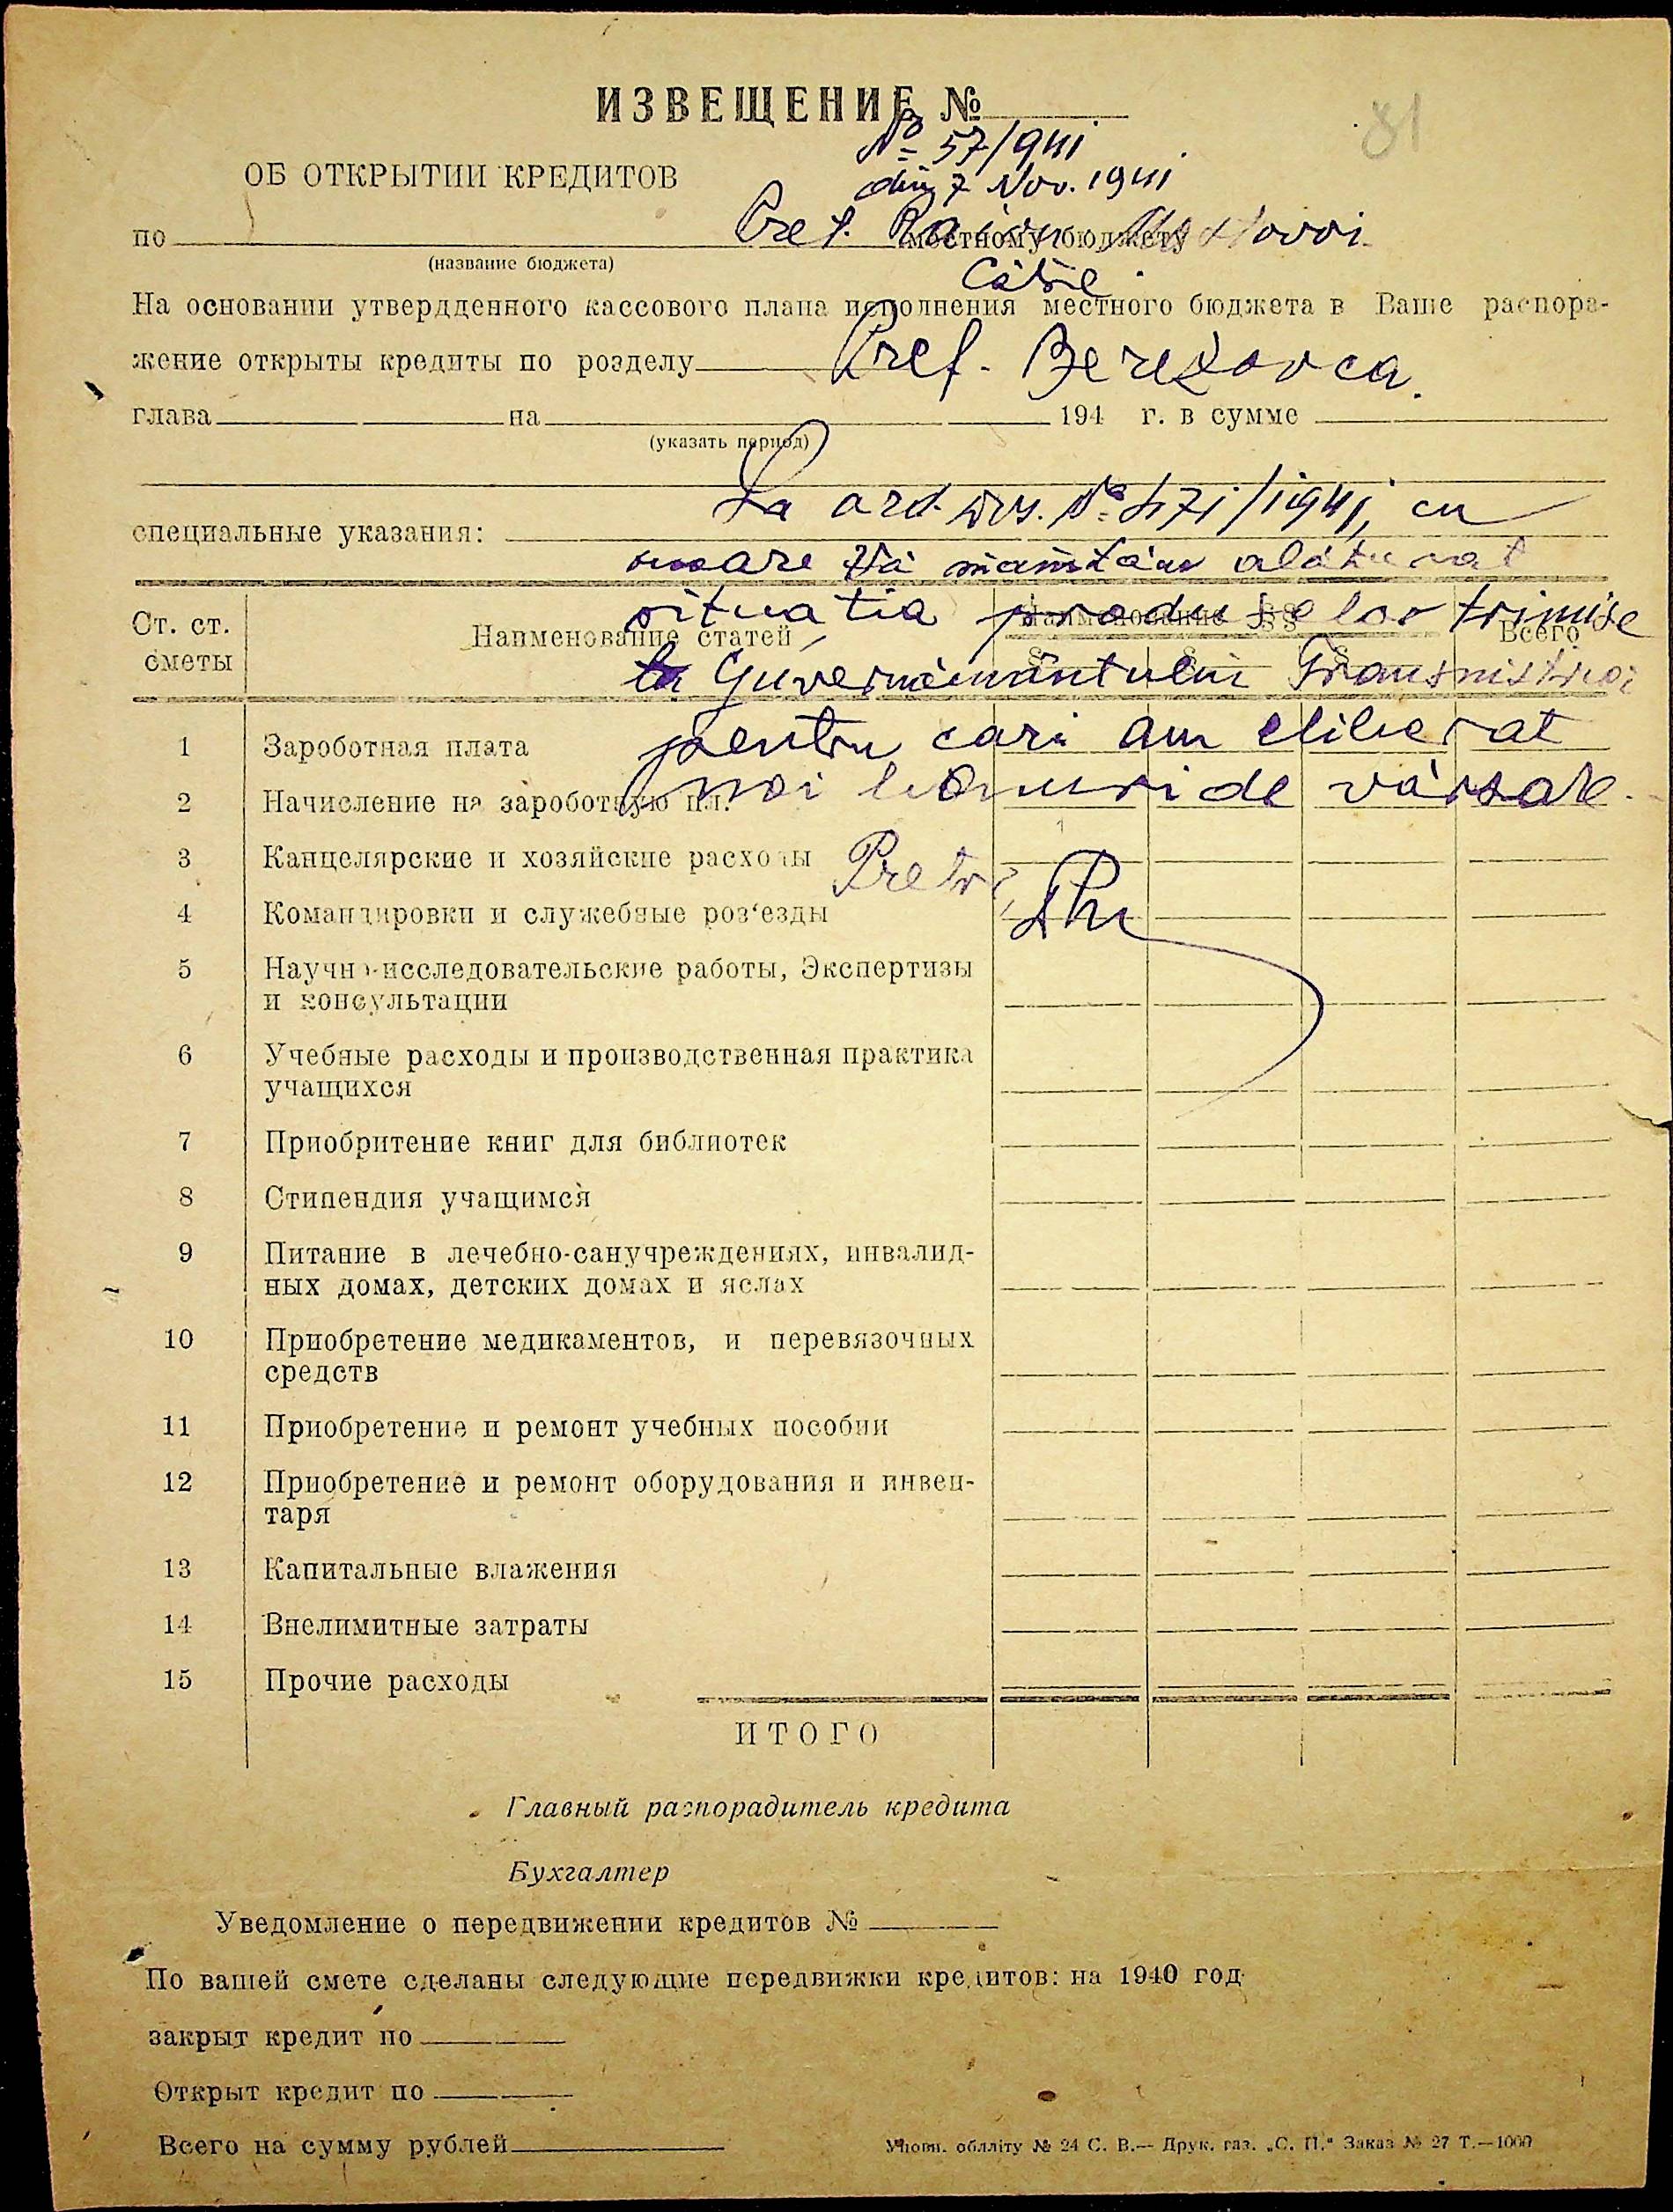 81
ИЗВЕЩЕНИЕ №
№ 57/941
din 7 Nov. 1941
ОБ ОТКРЫТИИ КРЕДИТОВ
Pret.
по местному бюджету
(название бюджета)
către
На основании утвердденного кассового плана исполнения местного бюджета в Ваше распора-
жение открыты кредиты по розделу
Pref. Berezovca.
глава на 194 г. в сумме
(указать период)
La ord. Dvs. № 471/1941, cu
специальные указания:
onoare Vă înaintăm alăturat
situatia produselor trimise
Ст. ст. сметы
Наименование статей
Наименование §§
Всего
la Guvernământului Transnistriei
1 Зароботная плата
pentru cari am eliberat
2 Начисление на зароботную пл.
noi bonuri de vărsare.
3 Канцелярские и хозяйские расходы
Pretor,
4 Командировки и служебные роз‘езды
5 Научно-исследовательские работы, Экспертизы
и консультации
6 Учебные расходы и производственная практика
учащихся
7 Приобритение книг для библиотек
8 Стипендия учащимся
9 Питание в лечебно-санучреждениях, инвалид-
ных домах, детских домах и яслах
10 Приобретение медикаментов, и перевязочных
средств
11 Приобретение и ремонт учебных пособии
12 Приобретение и ремонт оборудования и инвен-
таря
13 Капитальные влажения
14 Внелимитные затраты
15 Прочие расходы
ИТОГО
Главный распорадитель кредита
Бухгалтер
Уведомление о передвижении кредитов №
По вашей смете сделаны следующие передвижки кредитов: на 1940 год
закрыт кредит по
Открыт кредит по
Всего на сумму рублей
Уповн. облліту № 24 С. В.— Друк. газ. „С. П.“ Заказ № 27 Т.—1000